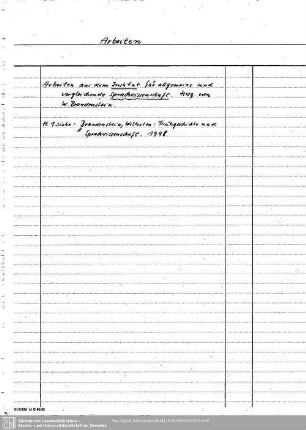 Arbeiten
Arbeiten aus dem Institut für allgemeine und
vergleichende Sprachwissenschaft. Hrsg. von
W. Brandenstein
H. 1 siehe: Brandenstein, Wilhelm: Frühgeschichte und
Sprachwissenschaft. 1948
Sächsische Landesbibliothek -
Staats- und Universitätsbibliothek Dresden